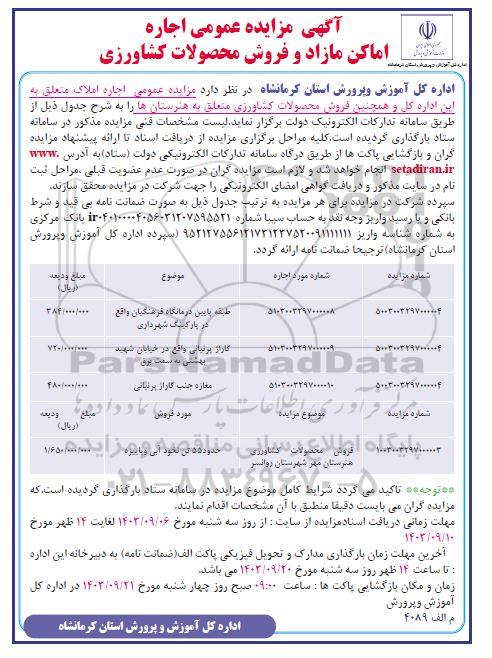 آگهی مزایده عمومی اجاره
اماکن مازاد و فروش محصولات کشاورزی
اداره کل آموزش و پرورش استان کرمانشاه
اداره کل آموزش وپرورش استان کرمانشاه در نظر دارد مزایده عمومی اجاره املاک متعلق به
این اداره کل و همچنین فروش محصولات کشاورزی متعلق به هنرستان ها را به شرح جدول ذیل از
طریق سامانه تدارکات الکترونیک دولت برگزار نماید.لیست مشخصات فنی مزایده مذکور در سامانه
ستاد بارگذاری گردیده است.کلیه مراحل برگزاری مزایده از دریافت اسناد تا ارائه پیشنهاد مزایده
گران و بازگشایی پاکت ها از طریق درگاه سامانه تدارکات الکترونیکی دولت (ستاد)به آدرس www.
setadiran.ir انجام خواهد شد و لازم است مزایده گران در صورت عدم عضویت قبلی ،مراحل ثبت
نام در سایت مذکور و دریافت گواهی امضای الکترونیکی را جهت شرکت در مزایده محقق سازند.
سپرده شرکت در مزایده برای هر مزایده به ترتیب جدول ذیل به صورت ضمانت نامه بی قید و شرط
بانکی و یا رسید واریز وجه نقد به حساب سیبا شماره ir۰۴۰۱۰۰۰۰۴۰۵۶۰۳۱۲۰۷۵۹۵۵۲۱ بانک مرکزی
به شماره شناسه واریز ۹۵۲۱۲۷۵۵۶۱۲۱۷۳۱۲۳۷۵۲۰۰۹۱۱۱۱۱۱۱ (سپرده اداره کل آموزش وپرورش
استان کرمانشاه)ترجیحا ضمانت نامه ارائه گردد.
شماره مزایده شماره مورد اجاره موضوع مبلغ ودیعه (ریال)
۵۰۰۳۰۰۳۲۹۷۰۰۰۰۰۴ ۵۱۰۳۰۰۳۲۹۷۰۰۰۰۰۸ طبقه پایین درمانگاه فرهنگیان واقع ۳۸۴/۰۰۰/۰۰۰
در پارکینگ شهرداری
۵۰۰۳۰۰۳۲۹۷۰۰۰۰۰۴ ۵۱۰۳۰۰۳۲۹۷۰۰۰۰۰۹ گاراژ پرنیانی واقع در خیابان شهید ۷۲۰/۰۰۰/۰۰۰
بهشتی به سمت برق
۵۰۰۳۰۰۳۲۹۷۰۰۰۰۰۴ ۵۱۰۳۰۰۳۲۹۷۰۰۰۰۱۰ مغازه جنب گاراژ پرنیانی ۴۸۰/۰۰۰/۰۰۰
شماره مزایده موضوع مزایده مورد فروش مبلغ ودیعه (ریال)
۱۰۰۳۰۰۳۲۹۷۰۰۰۰۰۳ فروش محصولات کشاورزی حدود۵۵ تن نخود آبی وپاییزه ۱/۶۵۰/۰۰۰/۰۰۰
هنرستان مهر شهرستان روانسر
ParsNamadData
مرکز فرآوری اطلاعات پارس نماد داده ها
پایگاه اطلاع رسانی مناقصه و مزایده
۰۲۱-۸۸۳۴۹۶۷۰-۵
**توجه** تاکید می گردد شرایط کامل موضوع مزایده در سامانه ستاد بارگذاری گردیده است،که
مزایده گران می بایست دقیقا منطبق با آن مشخصات اقدام نمایند.
مهلت زمانی دریافت اسنادمزایده از سایت : از روز سه شنبه مورخ ۱۴۰۳/۰۹/۰۶ لغایت ۱۴ ظهر مورخ
۱۴۰۳/۰۹/۱۰
آخرین مهلت زمان بارگذاری مدارک و تحویل فیزیکی پاکت الف(ضمانت نامه) به دبیرخانه این اداره
: تا ساعت ۱۴ ظهر روز سه شنبه مورخ ۱۴۰۳/۰۹/۲۰ می باشد.
زمان و مکان بازگشایی پاکت ها : ساعت ۰۹:۰۰ صبح روز چهار شنبه مورخ ۱۴۰۳/۰۹/۲۱ در اداره کل
آموزش وپرورش
م الف ۴۰۸۹
اداره کل آموزش و پرورش استان کرمانشاه